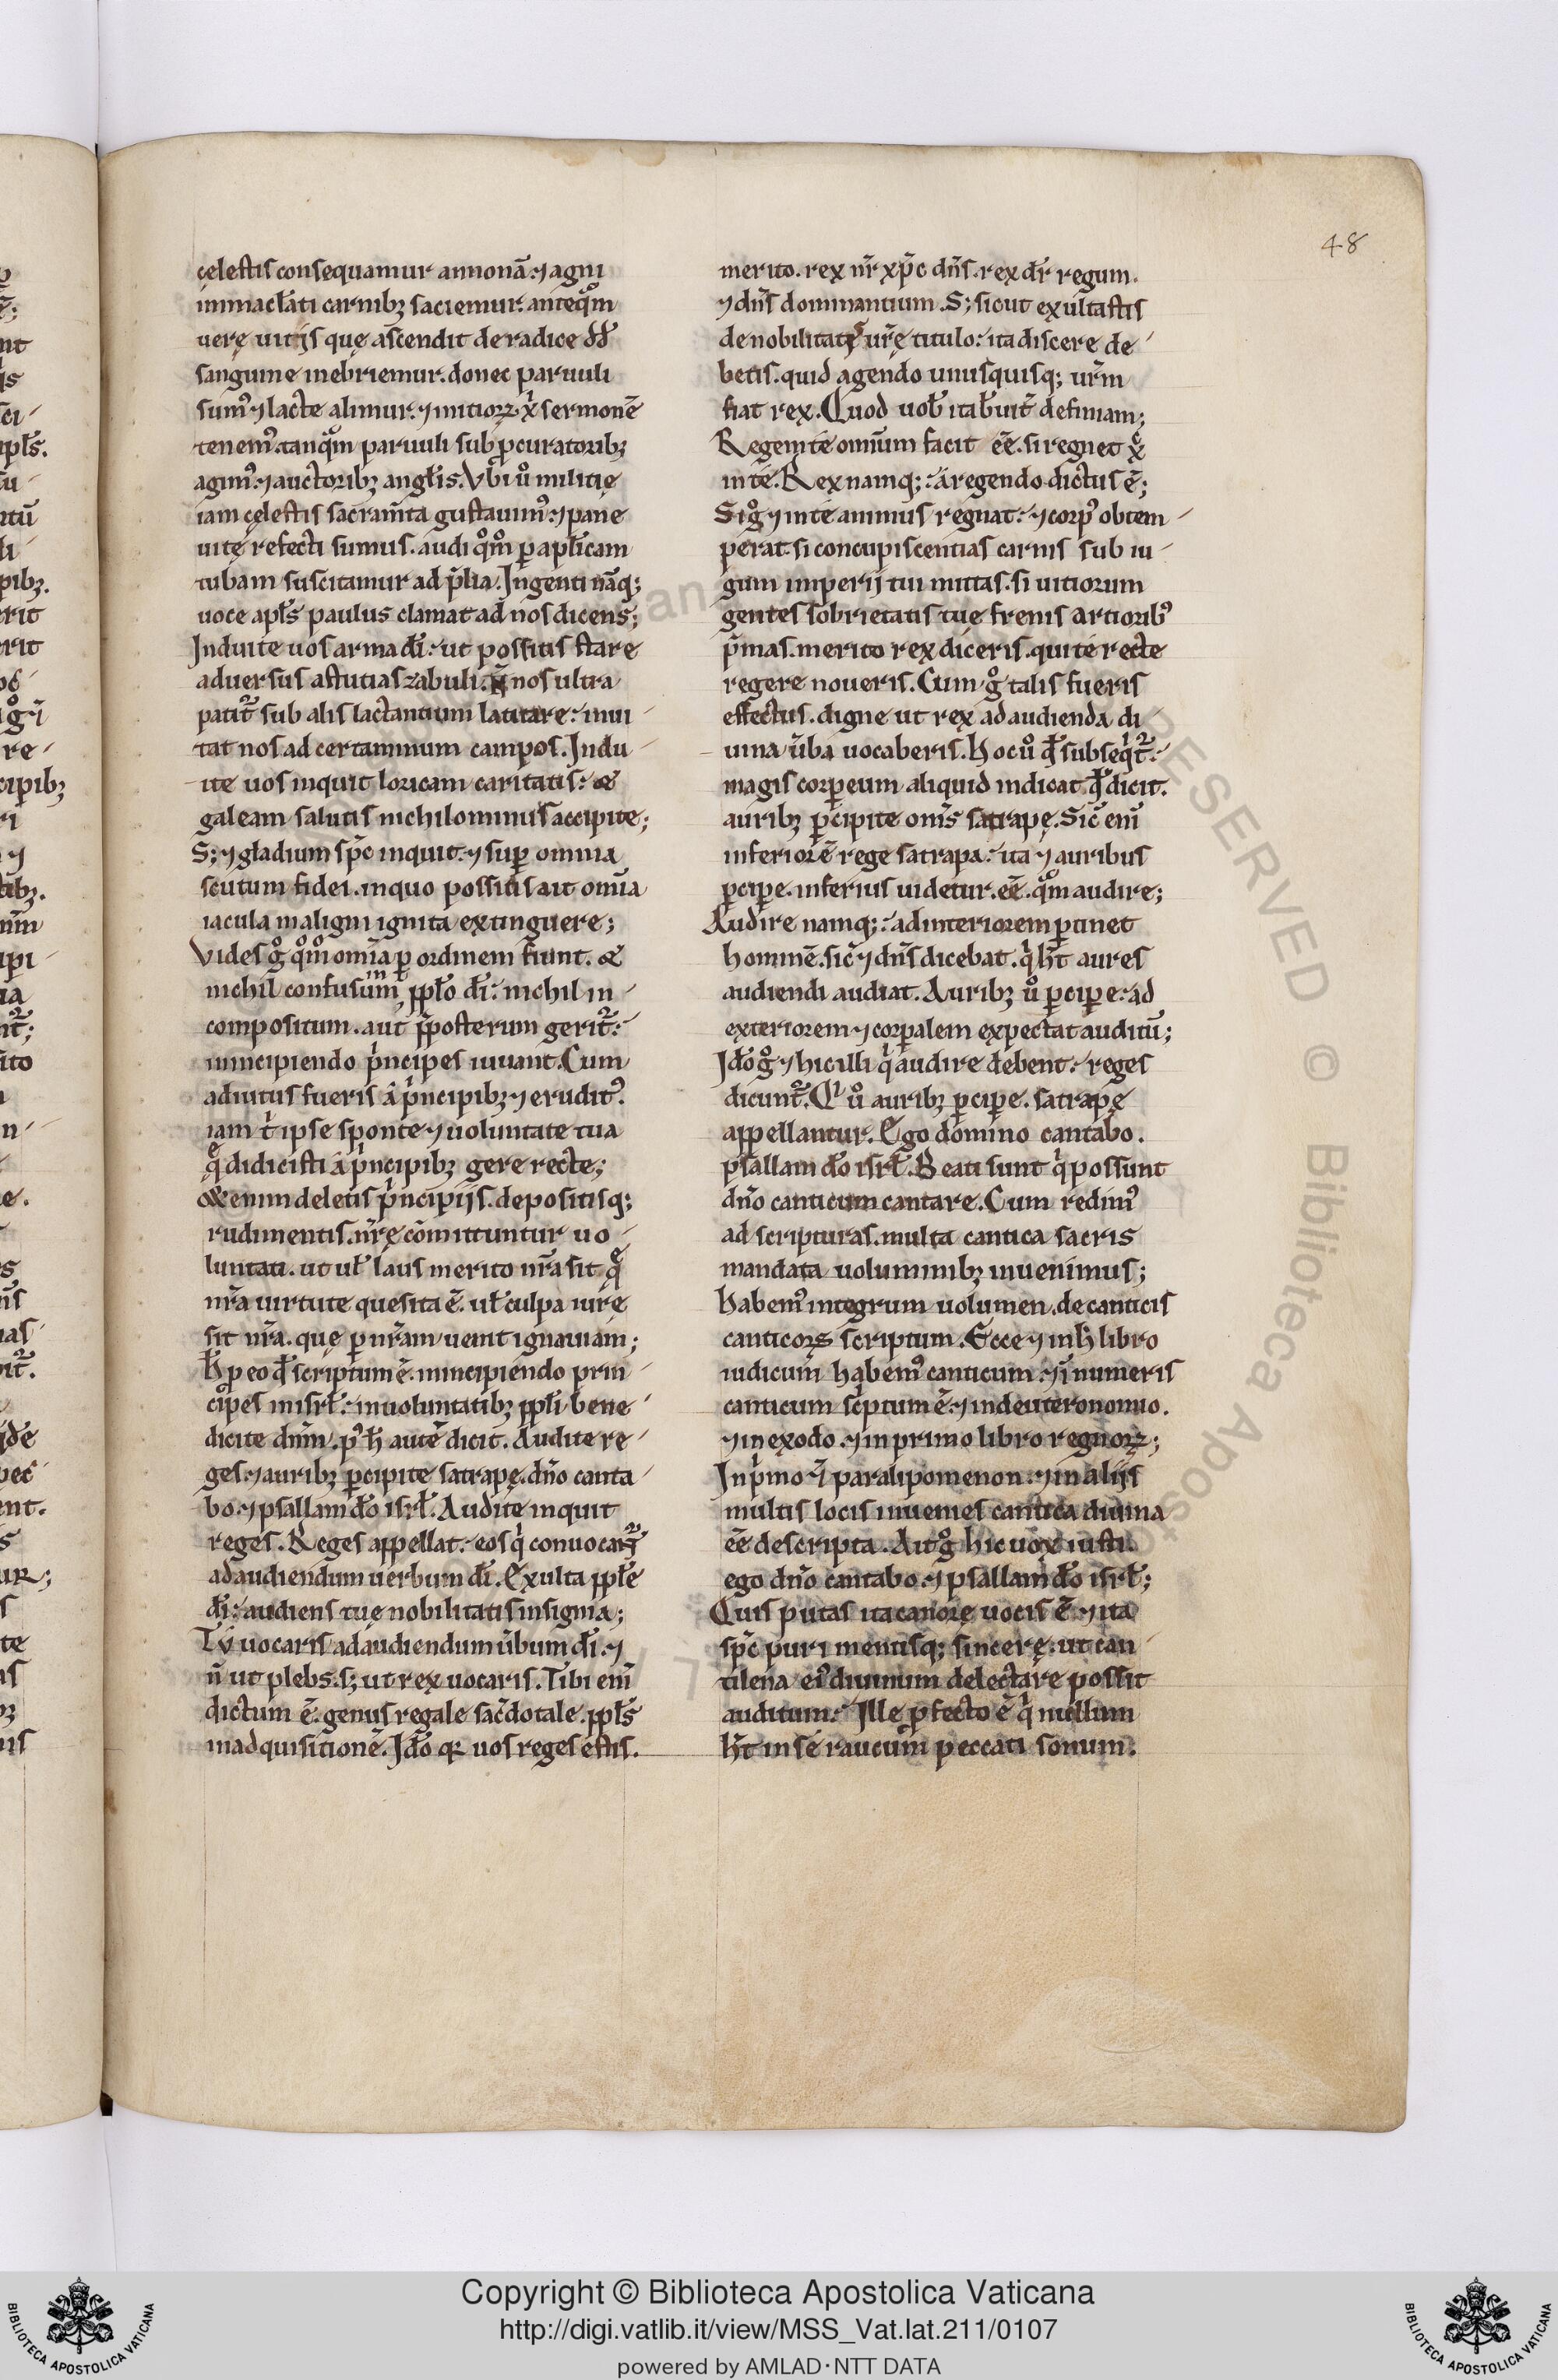 48
cęlestis consequamur annonā. ⁊ agni
immacl̄ati carnibꝫ saciemur. anteqͦm
uerę uitis quę ascendit de radice dd̄
sanguine inebriemur. donec paruuli
sumꝰ ⁊ lacte alimur. ⁊ initioꝝ xp̄i sermonē
tenemꝰ. tanqͦm paruuli sub ꝓcuratoribꝫ
agimꝰ. ⁊ auctoribꝫ angl̄is. Vbi uͦ militię
iam cęlestis sacram̄ta gustauimꝰ. ⁊ pane
uitę refecti sumus. audi qͦmͦ ꝑ apl̄icam
tubam suscitamur ad p̄lia. Ingenti nāq;
uoce apl̄s paulus clamat ad nos dicens;
Induite uos arma dī: ut possitis stare
aduersus astutias zabuli. n̄ nos ultra
patit᷑ sub alis lactantium latitare: inui
tat nos ad certaminum campos. Indu
ite uos inquit loricam caritatis: &
galeam salutis nichilominus accipite;
S; ⁊ gladium sp̄c inquit. ⁊ suꝑ omnia
scutum fidei. in quo possitis ait om̄ia
iacula maligni ignita extinguere;
Vides gͦ qͦmͦ om̄ia ꝑ ordinem fiunt. &
nichil confusum int̄ ppl̄o dī: nichil in
compositum. aut p̄posterum gerit᷑:
inincipiendo pͥncipes iuuant. Cum
adiutus fueris á pͥncipibꝫ ⁊ eruditꝰ.
iam t̄ ipse sponte ⁊ uoluntate tua
q̨ͣ didicisti á pͥncipibꝫ gere recte;
&enim deletis pͥncipijs. depositisq;
rudimentis. nr̄ę cōmittuntur uo
luntati. ut ul̄ laus merito nr̄a sit q̨ͣ
nr̄a uirtute quesita ē. ul̄ culpa iure
sit nr̄a. quę ꝑ nr̄am uenit ignauiam;
h̄ ꝑ eo qd̄ scriptum ē. inincipiendo prin
cipes inisrl̄: in uoluntatibꝫ ppl̄i bene
dicite dn̄m. pꝰ h̄ autē dicit. Audite re
ges. ⁊ auribꝫ ꝑcipite satrapę. dn̄o canta
bo. ⁊ psallam dō isrl̄. Audite inquit
reges. Reges appellat. eos qͥ conuocant᷑
ad audiendum uerbum dī. Exulta ppl̄e
dī: audiens tuę nobilitatis insignia;
Tú uocaris ad audiendum ūbum dī. ⁊
n̄ ut plebs. s; ut rex uocaris. Tibi eni̅
dictum ē. genus regale sac̄dotale. ppl̄s
in adquisitionē. Idō qꝛ uos reges estis.
merito. rex nr̄ xp̄c dn̄s. rex dr̄ regum.
⁊ dn̄s dominantium. S; sicut exultastis
de nobilitatis ur̄ę titulo: ita discere de
betis. quid agendo unusquisq; ur̄m
fiat rex. Quod uob̄ ita b̄uit᷑ definiam;
Regem te omnium facit eē. si regnet xp̄c
in te. Rex namq;: á regendo dictus ē;
Si gͦ ⁊ in te animus regnat. ⁊ corpꝰ obtem
perat. si concupiscentias carnis sub iu
gum imperij tui mittas. si uitiorum
gentes sobrietatis tuę frenis artioribꝰ
p̄mas. merito rex diceris. qui te recte
regere noueris. Cum gͦ talis fueris
effectus. digne ut rex ad audienda di
uina ūba uocaberis. Hoc uͦ qd̄ subseqͥt᷑:
magis corꝑeum aliquid indicat. qd̄ dicit.
auribꝫ ꝑcipite om̄s satrapę. Sic̄ eni̅
inferiorē rege satrapa: ita ⁊ auribus
ꝑcipe. inferius uidetur. eē. qͦm audire;
Audire namq;: ad interiorem ꝑtinet
hominē. sic̄ ⁊ dn̄s dicebat. qͥ h̄t aures
audiendi audiat. Auribꝫ uͦ ꝑcipe: ad
exteriorem ⁊ corꝑalem expectat auditū;
Idō gͦ ⁊ hic illi qͥ audire debent: reges
dicunt᷑. Qͥ uͦ auribꝫ ꝑcipe. satrapę
appellantur. Ego domino cantabo.
psallam dō isrl̄. Beati sunt qͥ possunt
dn̄o canticum cantare. Cum redimꝰ
ad scripturas. multa cantica sacris
mandata uoluminibꝫ inuenimus;
habemꝰ integrum uolumen. de canticis
canticoꝝ scriptum. Ecce ⁊ in h̄ libro
iudicum habemꝰ canticum. ⁊ ī numeris
canticum scͥptum ē. ⁊ in deuteronomio.
⁊ in exodo. ⁊ in primo libro regnoꝝ;
In pͥmo ⁊̄ paralipomenon. ⁊ in alijs
multis locis inuenies cantica diuina
eē descripta. Ait gͦ hic uox iusti.
ego dn̄o cantabo. ⁊ psallam dō isrl̄;
Quis putas ita canorę uocis ē. ⁊ ita
sp̄c puri mentisq; sincerę. ut can
tilena eiꝰ diuinum delectare possit
auditum: Ille ꝓfecto ē qͥ nullum
h̄t in se raucum peccati sonum.
Copyright © Biblioteca Apostolica Vaticana
http://digi.vatlib.it/view/MSS_Vat.lat.211/0107
powered by AMLAD·NTT DATA
BIBLIOTECA APOSTOLICA VATICANA
BIBLIOTECA APOSTOLICA VATICANA